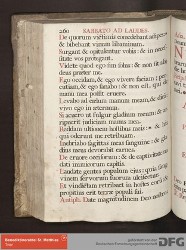 260 SABBATO AD LAUDES.
De quorum victimis comedebant adipes: *
& bibebant vinum libaminum.
Surgant & opitulentur vobis: * & in necessi-
tate vos protegant.
Videte quod ego sim solus: * & non sit alius
deus præter me.
Ego occidam, & ego vivere faciam: * per-
cutiam, & ego sanabo: & non est, qui de
manu mea possit eruere.
Levabo ad cælum manum meam, & dicam: *
vivo ego in æternum.
Si acuero ut fulgur gladium meum: * & ar-
ripuerit judicium manus mea:
Reddam ultionem hostibus meis: * & his
qui oderunt me retribuam.
Inebriabo sagittas meas sanguine: * & gla-
dius meus devorabit carnes.
De cruore occisorum: * & de captivitate, nu-
dati inimicorum capitis.
Laudate gentes populum ejus: * quia sangui-
nem servorum suorum ulciscetur.
Et vindictam retribuet in hostes eorum: * &
propitius erit terræ populi sui.
Antiph. Date magnitudinem Deo nostro.
DFG